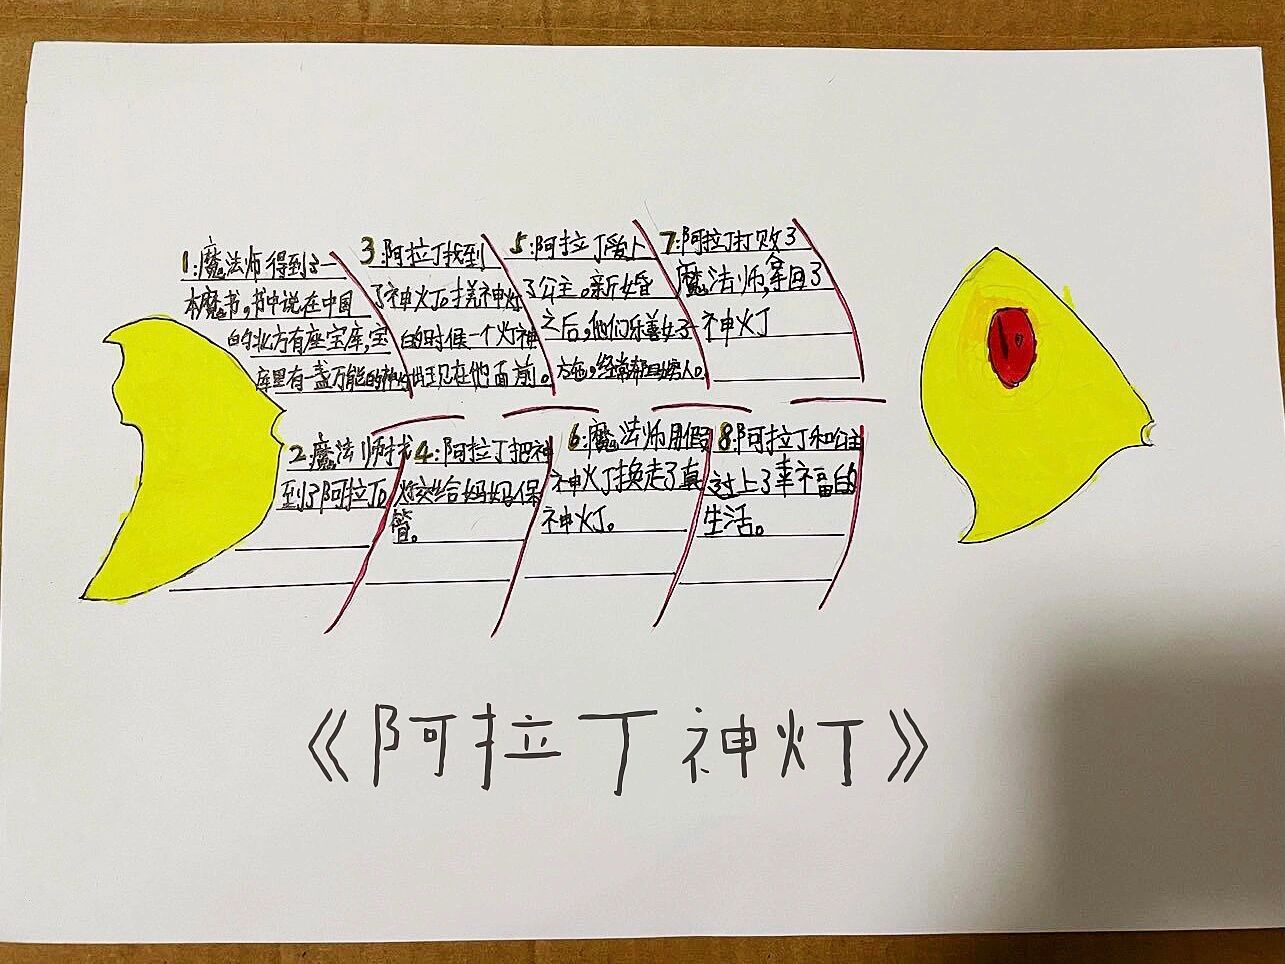 1:魔法师得到了一
本魔书,书中说在中国
的北方有座宝库,宝
库里有一盏万能的神灯
2.魔法师找
到了阿拉丁。
3:阿拉丁找到
了神灯。擦神灯
的时候一个灯神
出现在他面前。
4:阿拉丁把神
灯交给妈妈保
管。
5:阿拉丁爱上
了公主。新婚
之后,他们乐善好
方施。经常帮助穷人。
6:魔法师用假
神灯换走了真
神灯。
7:阿拉丁打败了
魔法师,拿回了
神灯
8:阿拉丁和公主
过上了幸福的
生活。
《阿拉丁神灯》